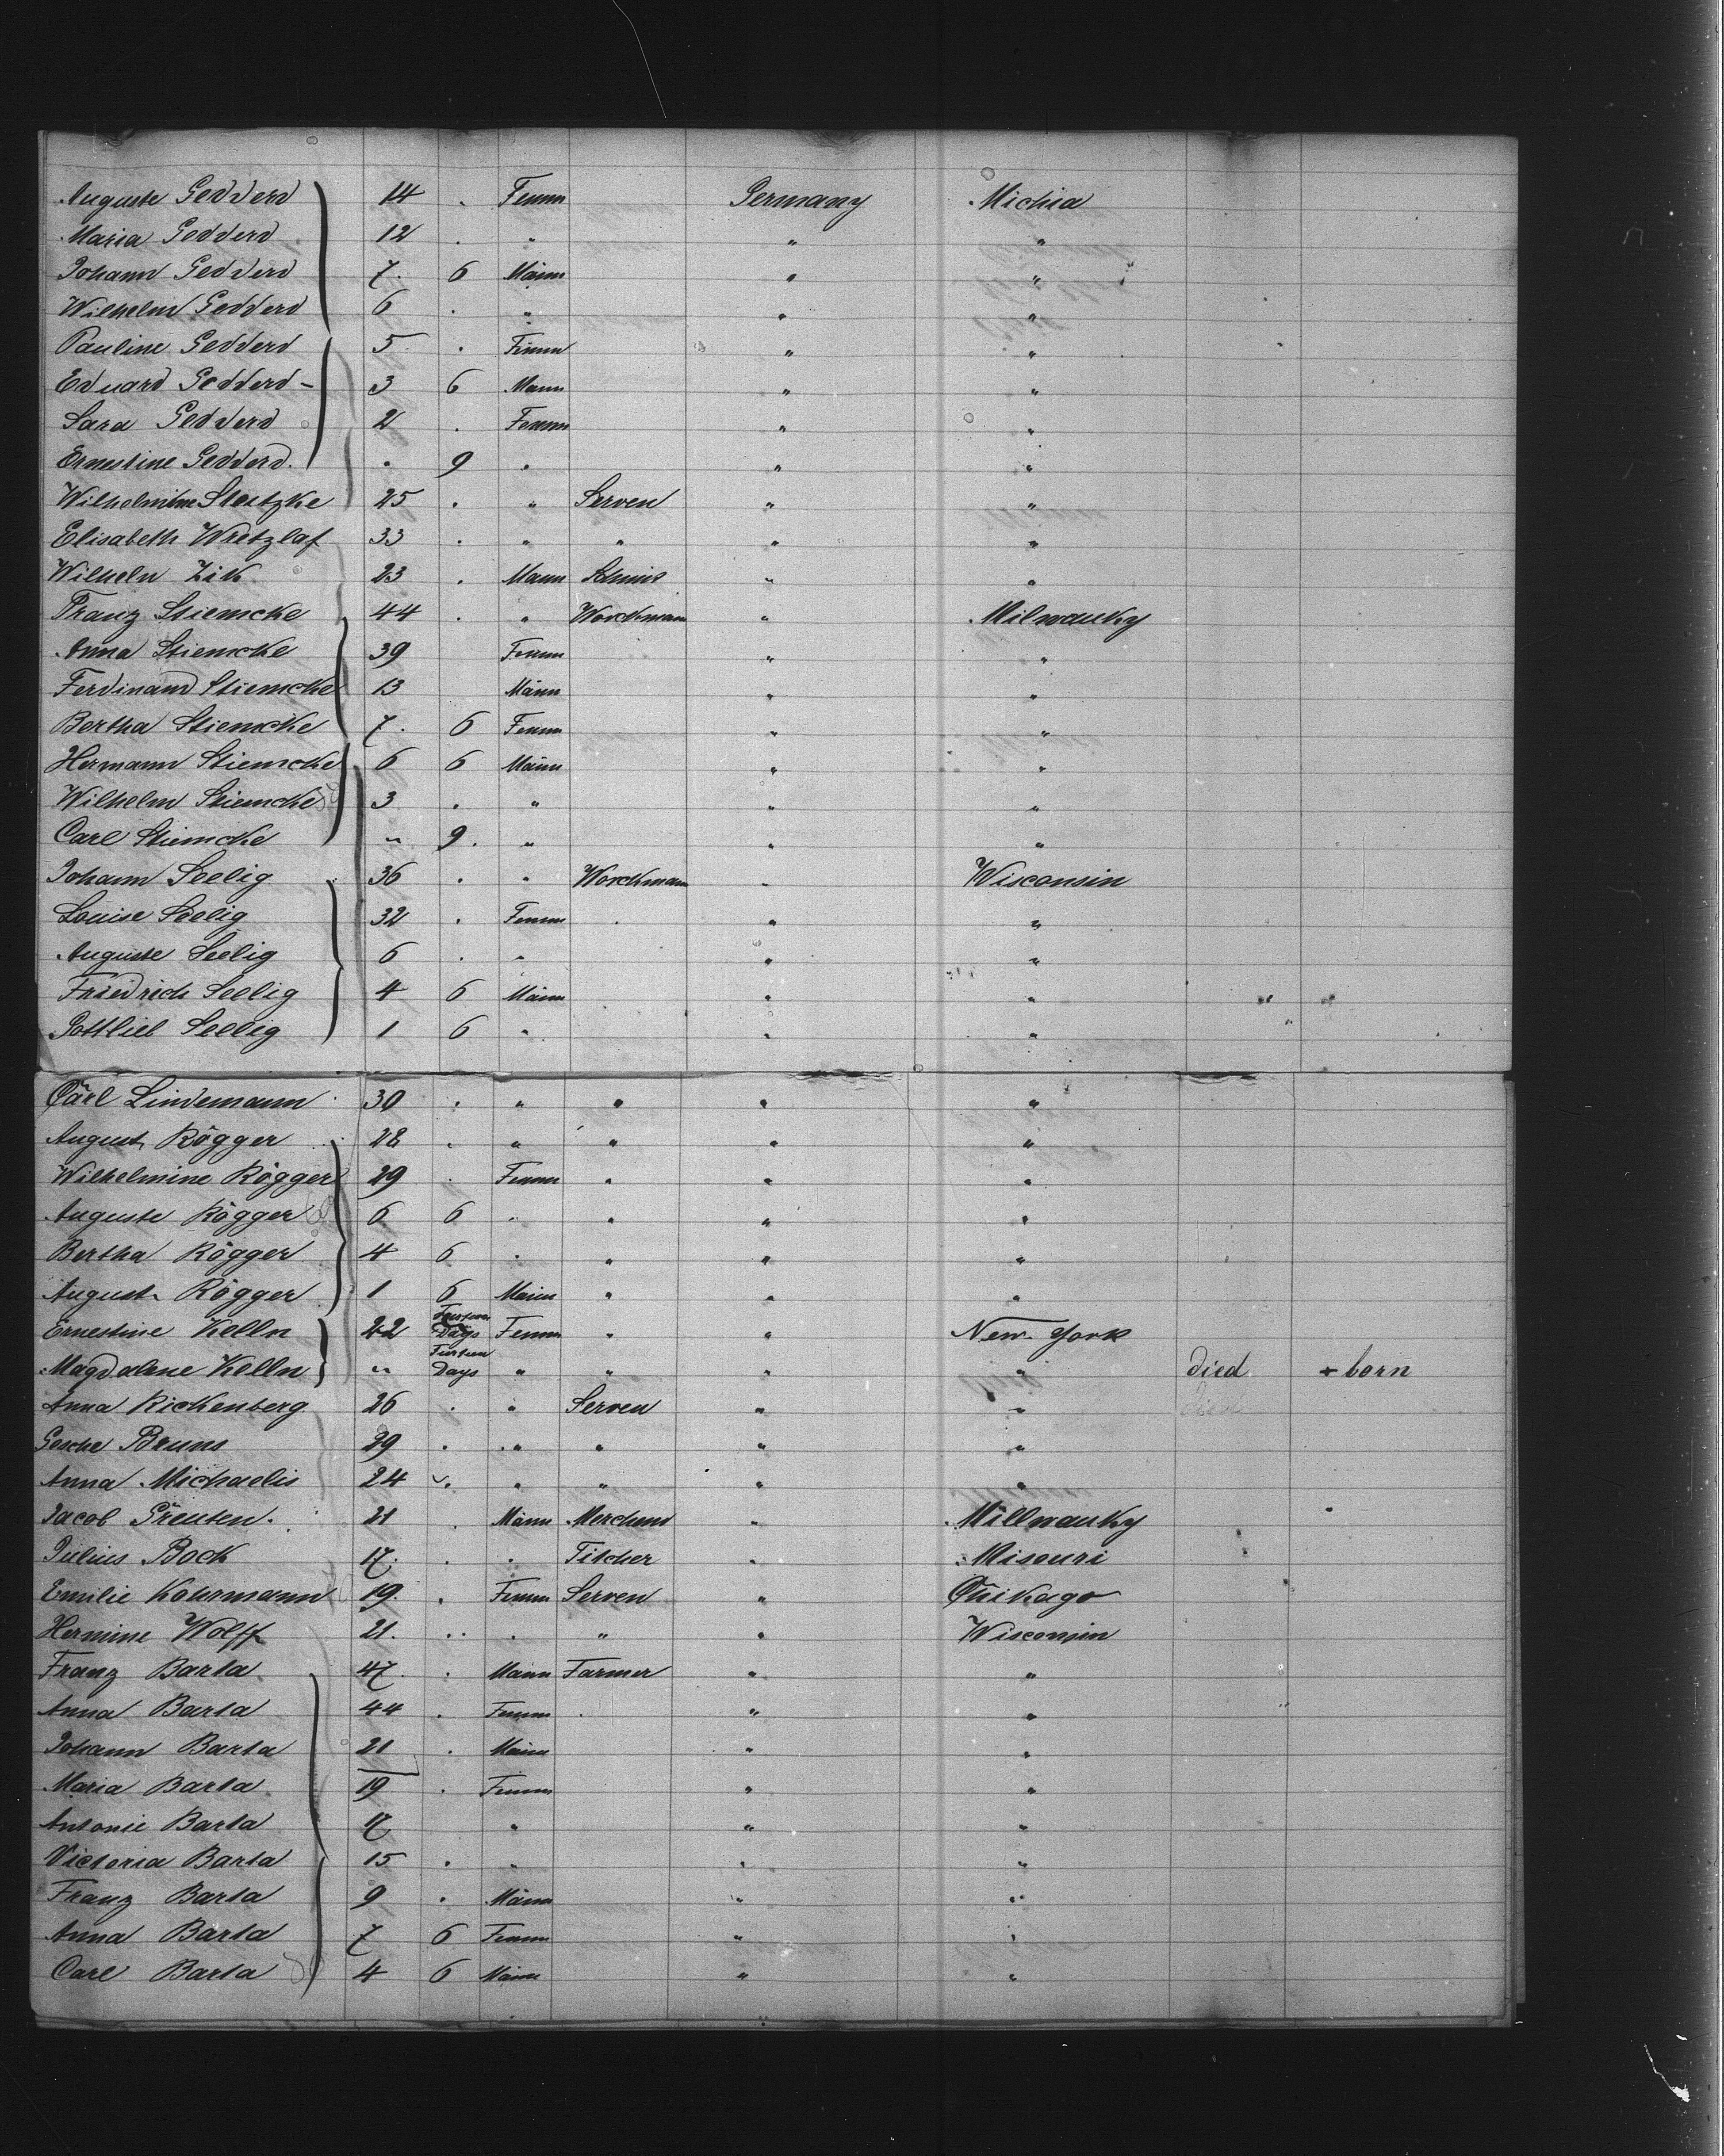 Auguste Gedderd 14 . Femm Germany Michia
Maria Gedderd 12 . " " "
Johann Gedderd 7. 6 Männ " "
Wilhelm Gedderd 6 . " " "
Pauline Gedderd 5 . Femm " "
Eduard Gedderd - 3 6 Mann " "
Sara Gedderd 2 . Femm " "
Ernestine Gedderd. " 9 " " "
Wilhelmine 25 . " Serven " "
Elisabeth Wretzlaf 33 . " " " "
Wilheln Zik 23 . Mann " "
Franz Stiemcke 44 . " Worckmann " Milwauky
Anna Stiemcke 39 Femm " "
Ferdinand Stiemcke 13 Männ " "
Bertha Stiemcke 7. 6 Femm " "
Hermann Stiemcke 6 6 Männ " "
Wilhelm Stiemcke 3 . " " "
Carl Stiemcke " 9. " " "
Johann Seelig 36 . " Worckmann " Wisconsin
Louise Seelig 32 . Femm . " "
Auguste Seelig 6 . " " "
Friedrich Seelig 4 6 Männ " "
Gottlieb Seelig 1 6 " " "
Carl Lindemann 30 . " " " "
August Rögger 28 . " " " "
Wilhelmine Rögger 29 . Femm " " "
Auguste Rögger 6 6 " " " "
Bertha Rögger 4 6 " " " "
August Rögger 1 6 Männ " " "
Ernestine Kelln 22 Days Femm " " New-York
Magdalene Kelln " Days " " " " died + born
Anna Rickenberg 26 . " Serven " "
Gesche Bruns 29 . " " " "
Anna Michaelis 24 . " " " "
Jacob Greuten. 21 . Männ " Millwauky
Julius Bock 17. . " Tischer " Misouri
Emilie Kohrmann 19. . Femm Serven " Chikago
Hermine Wolff 21. . " " " Wisconsin
Franz Barta 47. . Männ Farmer " "
Anna Barta 44 . Femm . " "
Johann Barta 21 . Männ " "
Maria Barta 19 . Femm " "
Antonie Barta 17 " " "
Victoria Barta 15 . " " "
Franz Barta 9 . Männ " "
Anna Barta 7 6 Femm " "
Carl Barta 4 6 Männ " "